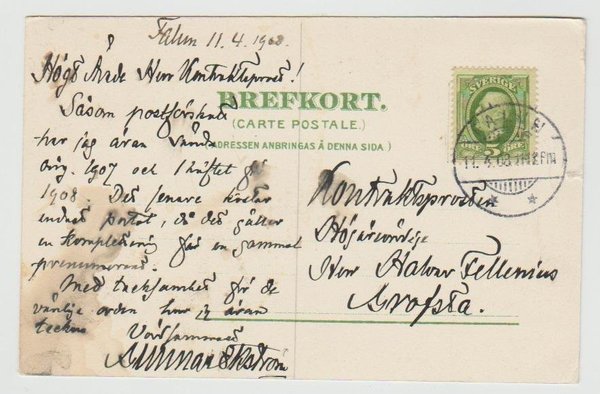 Falun 11.4.1908.
Högt Ärade Herr Kontraktsprost!
Såsom postförskott
har jag äran sända
årg. 1907 och 1 häftet af
1908. Det senare kostar
endast portot, då det gäller
en komplettering för en gammal
prenumerant.
Med tacksamhet för de
vänliga orden har jag äran
teckna
Vördsammast
Gunnar Ekström
BREFKORT.
(CARTE POSTALE.)
(ADRESSEN ANBRINGAS Å DENNA SIDA.)
SVERIGE
5
ÖRE
FALUN
11.4.08
Kontraktsprosten
Högärevördige
Herr Halvar Fellenius
Grofsta.